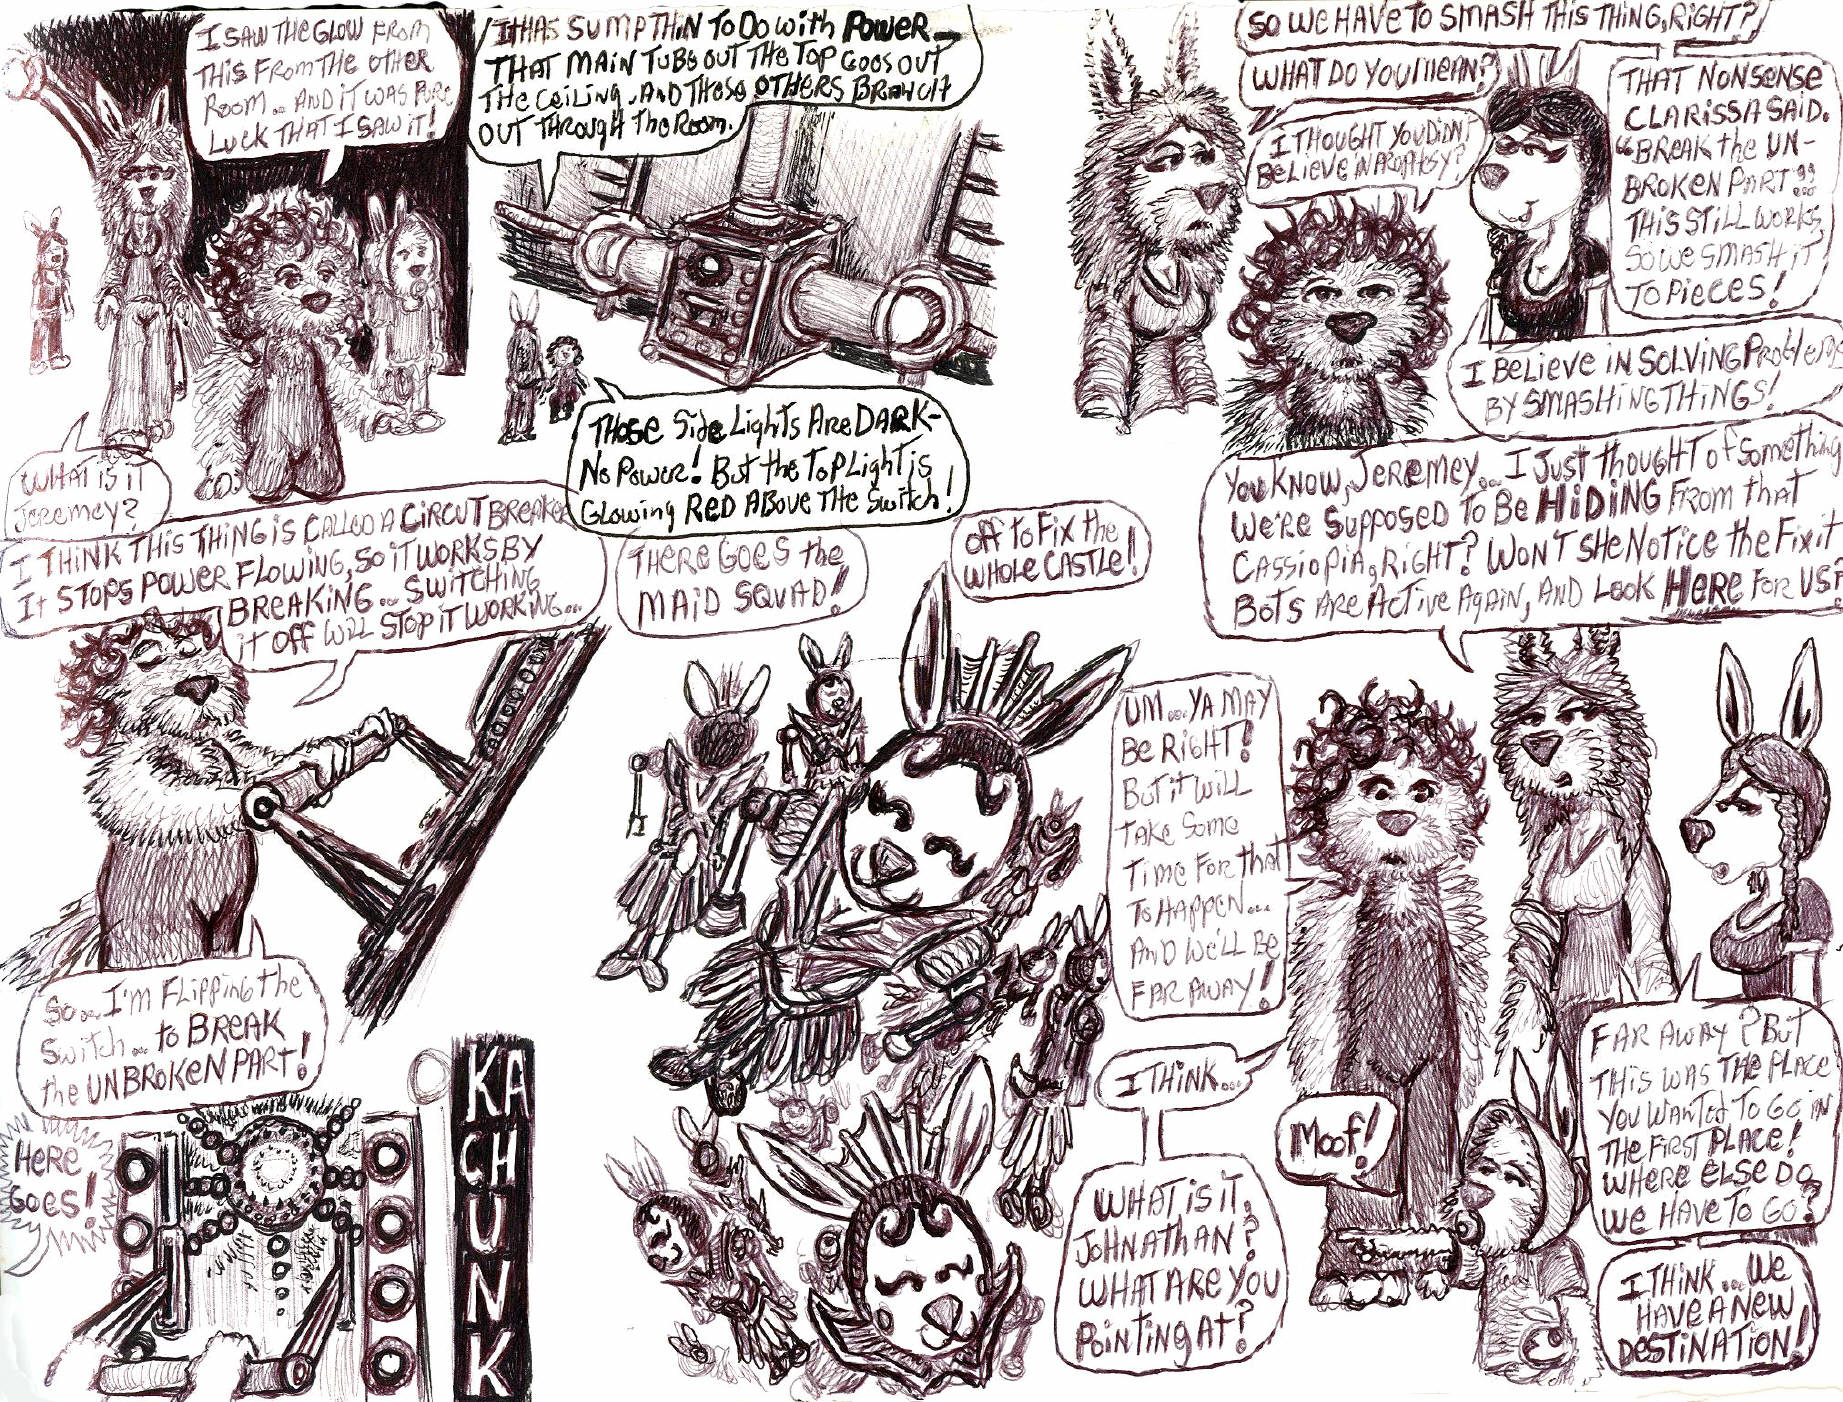 I SAW THE GLOW FROM
THIS FROM THE OTHER
ROOM... AND IT WAS PURE
LUCK THAT I SAW IT!
WHAT IS IT
JEREMEY?
IT HAS SUMPTHIN TO DO WITH POWER—
THAT MAIN TUBE OUT THE TOP GOES OUT
THE CEILING. AND THOSE OTHERS BRANCH
OUT THROUGH THE ROOM.
THOSE SIDE LIGHTS ARE DARK-
NO POWER! BUT THE TOP LIGHT IS
GLOWING RED ABOVE THE SWITCH!
SO WE HAVE TO SMASH THIS THING, RIGHT?
WHAT DO YOU MEAN?
THAT NONSENSE
CLARISSA SAID.
"BREAK THE UN-
BROKEN PART"...
THIS STILL WORKS,
SO WE SMASH IT
TO PIECES!
I THOUGHT YOU DIDN'T
BELIEVE IN PROPHESY?
I BELIEVE IN SOLVING PROBLEMS
BY SMASHING THINGS!
I THINK THIS THING IS CALLED A CIRCUT BREAKER
IT STOPS POWER FLOWING, SO IT WORKS BY
BREAKING... SWITCHING
IT OFF WILL STOP IT WORKING...
SO... I'M FLIPPING THE
SWITCH... TO BREAK
THE UNBROKEN PART!
HERE
GOES!
KA
CHUNK
THERE GOES THE
MAID SQUAD!
OFF TO FIX THE
WHOLE CASTLE!
YOU KNOW, JEREMEY... I JUST THOUGHT OF SOMETHING
WE'RE SUPPOSED TO BE HIDING FROM THAT
CASSIOPIA, RIGHT? WON'T SHE NOTICE THE FIXIT
BOTS ARE ACTIVE AGAIN, AND LOOK HERE FOR US?
UM... YA MAY
BE RIGHT!
BUT IT WILL
TAKE SOME
TIME FOR THAT
TO HAPPEN...
AND WE'LL BE
FAR AWAY!
FAR AWAY? BUT
THIS WAS THE PLACE
YOU WANTED TO GO IN
THE FIRST PLACE!
WHERE ELSE DO
WE HAVE TO GO?
I THINK...
MOOF!
WHAT IS IT,
JOHNATHAN?
WHAT ARE YOU
POINTING AT?
I THINK... WE
HAVE A NEW
DESTINATION!